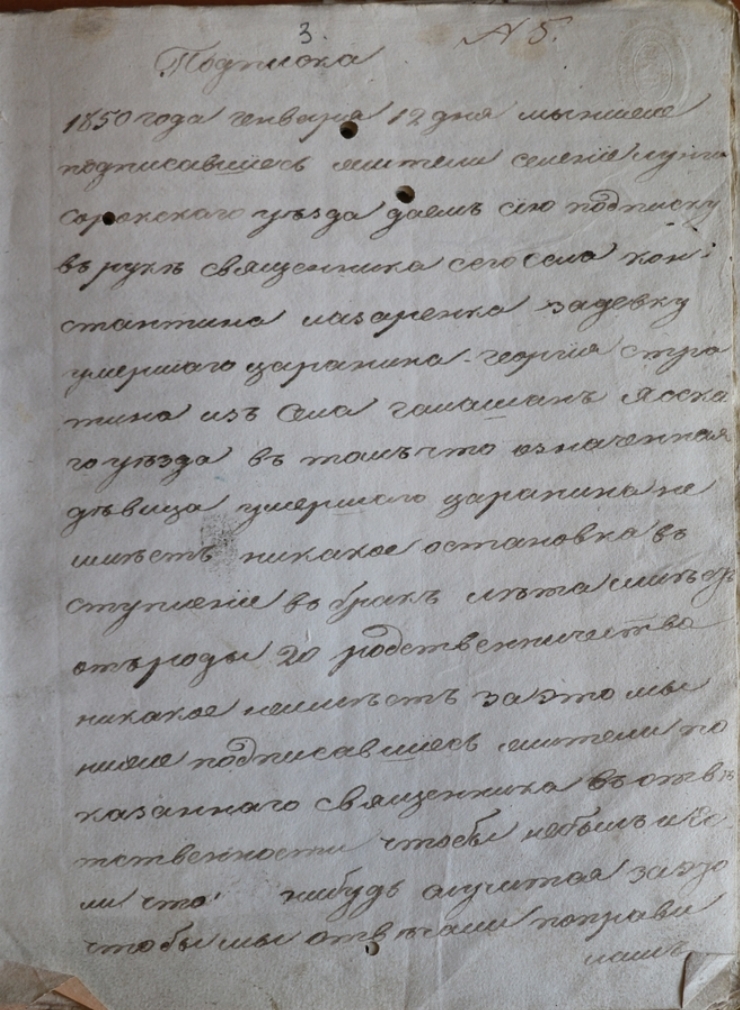 3. N 5.
Подписка
1850 года генваря 12 дня мы ниже
подписавшiесь жители селенiе
Сорокского уѣзда даемъ сiю подписку
въ рукѣ священника сего села кон-
стантина лазаренка за девку
умершаго царанина георгiя стра
тина изъ села галашанъ Ясска
го уѣзда въ томъ что означенная
дѣвица умершаго царанина не
имѣетъ никакое остановка въ
ступленiе въ бракъ лѣта имѣетъ
отъ роды 20 родственничества
никакое неимѣетъ за это мы
ниже подписавшiесь жители по
казаннаго священника въ отвѣ
тственности чтобы небылъ и ес
ли что нибудь случитая за это
чтобы мы отвѣчали поправи
ламъ